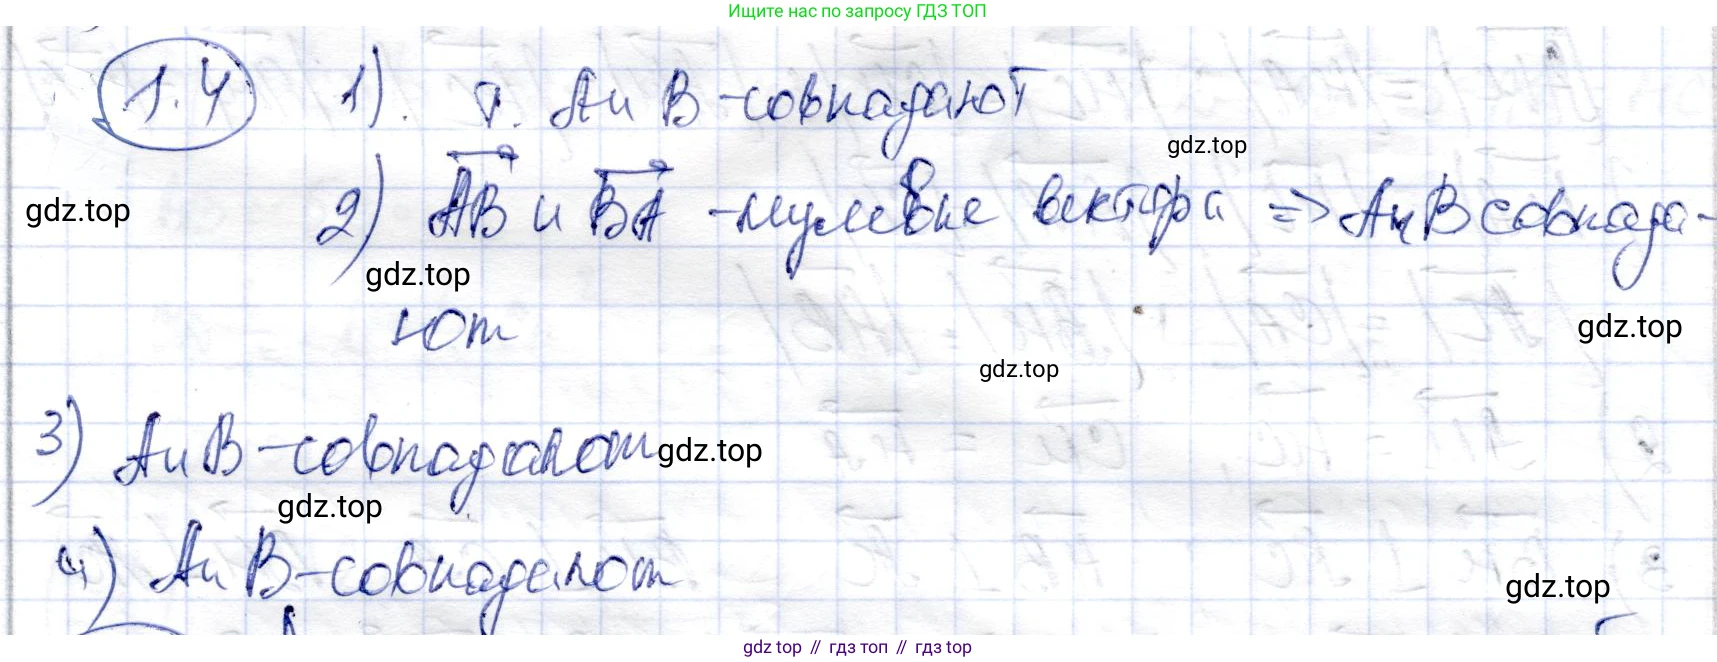 Ищите нас по запросу ГДЗ ТОП
1.4 1). т. A и B - совпадают
gdz.top
2) AB и BA - нулевые вектора => A и B совпада-
gdz.top
gdz.top
ют
gdz.top
gdz.top
3) A и B - совпадают
gdz.top
gdz.top
4) A и B - совпадают
gdz.top
gdz top // гдз топ // gdz.top